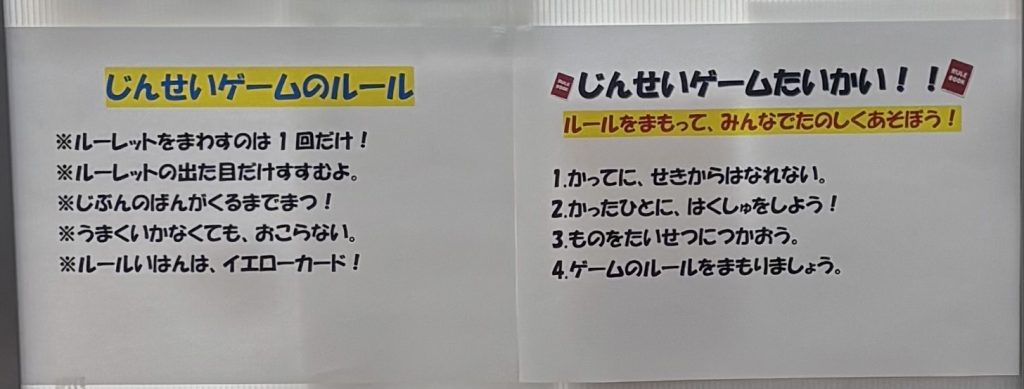 じんせいゲームのルール
※ルーレットをまわすのは1回だけ！
※ルーレットの出た目だけすすむよ。
※じぶんのばんがくるまでまつ！
※うまくいかなくても、おこらない。
※ルールいはんは、イエローカード！
RULE
BOOK
じんせいゲームたいかい！！
RULE
BOOK
ルールをまもって、みんなでたのしくあそぼう！
1.かってに、せきからはなれない。
2.かったひとに、はくしゅをしよう！
3.ものをたいせつにつかおう。
4.ゲームのルールをまもりましょう。